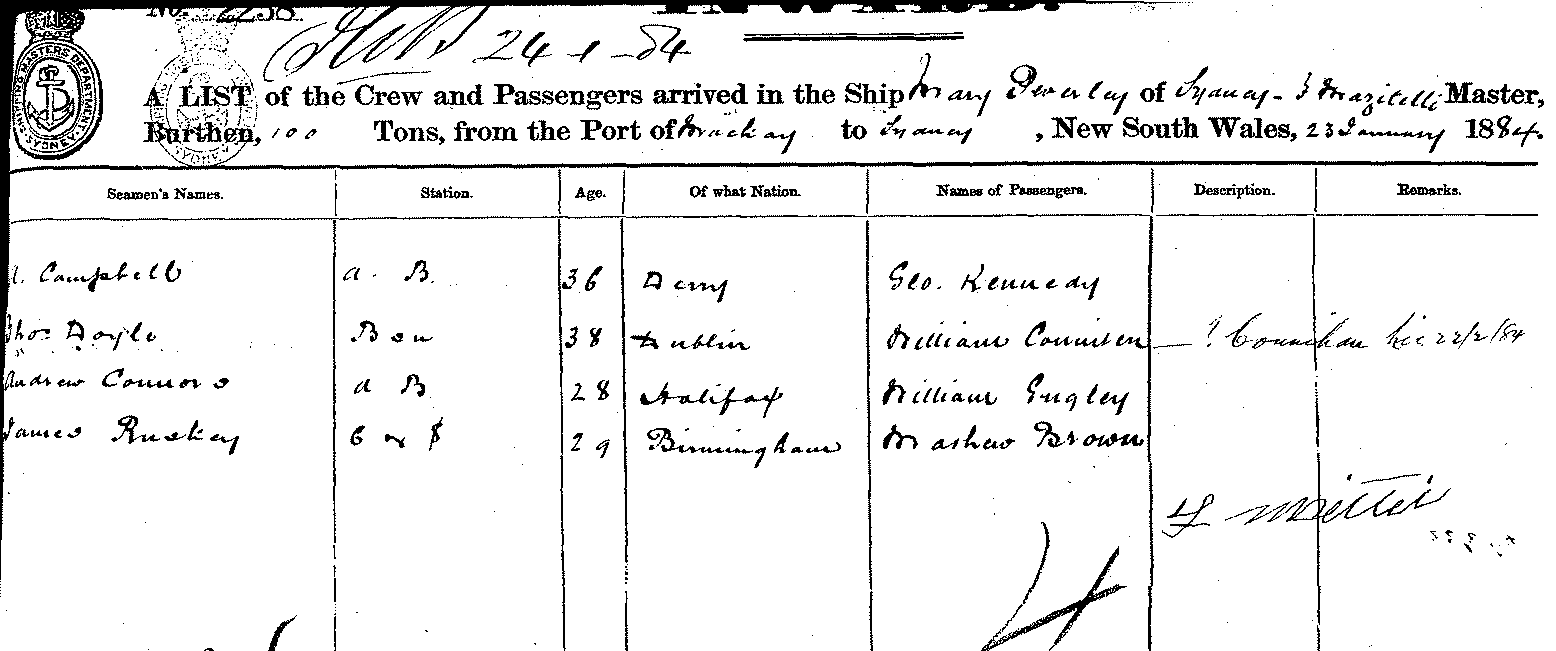 No. 2238.
INWARD.
24-1-84
SHIPPING MASTERS DEPARTMENT SYDNEY
A LIST of the Crew and Passengers arrived in the Ship Mary Peverley of Sydney - Master,
Burthen, 100 Tons, from the Port of Mackay to Sydney, New South Wales, 23 January 1884.
Seamen's Names. Station. Age. Of what Nation. Names of Passengers. Description. Remarks.
Campbell a. B. 36 Derry Geo. Kennedy
Thos Doyle 38 Dublin William Connisen — ? Counihan 22/2/84
Andrew Connors a B 28 Halifax William Gugley
James Ruskey 29 Birmingham Mashew Brown
4